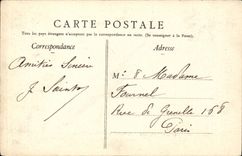 CARTE POSTALE
Tous les pays étrangers n'acceptent pas la correspondance au recto. (Se renseigner à la Poste).
Correspondance
Adresse
Amitiés Sincères
J.
Mr & Madame
Fournel
Rue de Grenelle 168
Paris